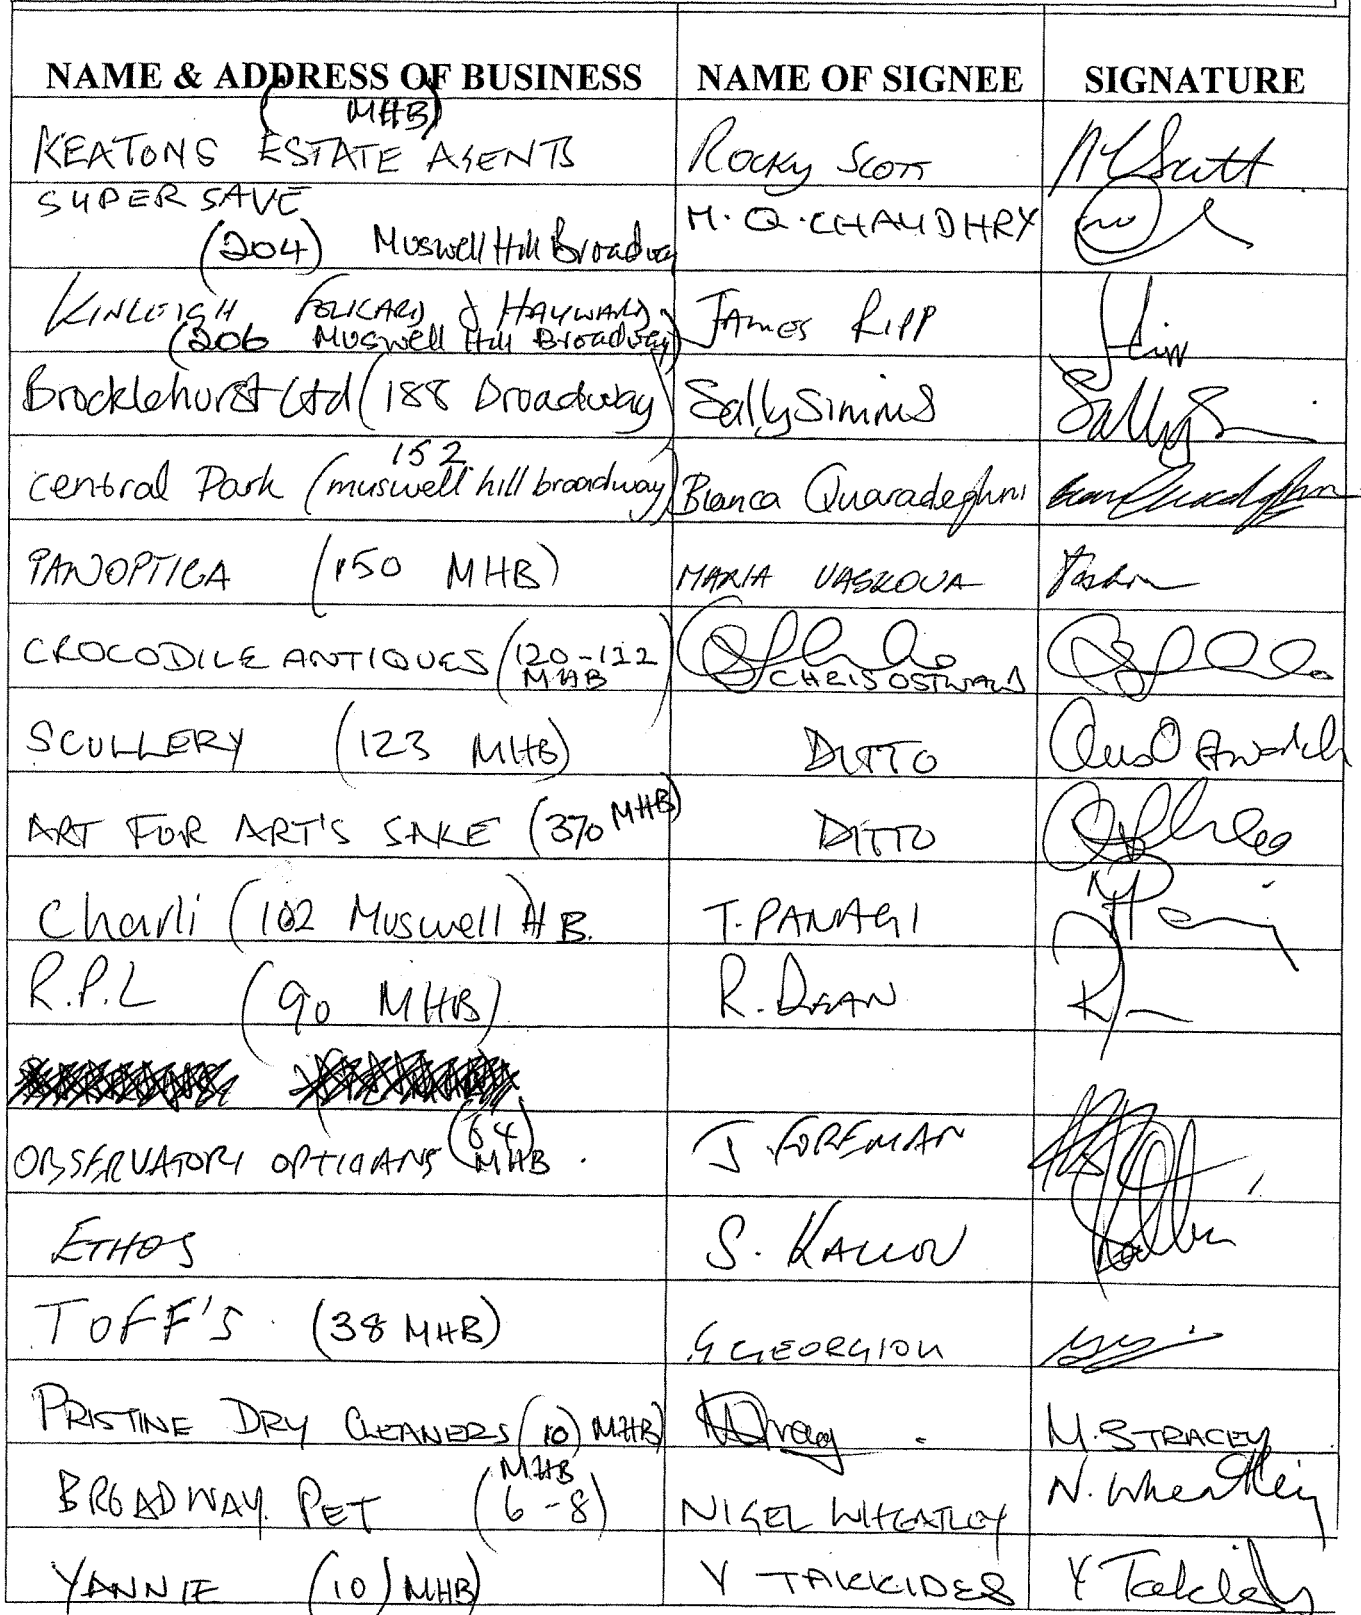 NAME & ADDRESS OF BUSINESS NAME OF SIGNEE SIGNATURE
(MHB)
KEATONS ESTATE AGENTS Rocky Scott
SUPER SAVE M.Q.CHAUDHRY
(204) Muswell Hill Broadway
KINLEIGH FOLKARD & HAYWARD JAMES RIPP
(206 Muswell Hill Broadway)
Brocklehurst Ltd (188 Broadway) Sally Simms
152
central Park (muswell hill broadway) Bianca Quaradeghini
PANOPTICA (150 MHB) MARIA VASKOVA
CROCODILE ANTIQUES (120-122
MHB CHRIS OSTWALD
SCULLERY (123 MHB) DITTO
ART FOR ART'S SAKE (370 MHB) DITTO
Charli (102 Muswell) H B. T. PANAGI
R.P.L (90 MHB) R. DEAN
OBSERVATORY OPTICIANS (64) MHB. J FOREMAN
ETHOS S.
TOFF'S (38 MHB) G GEORGIOU
PRISTINE DRY CLEANERS (10) MHB) M. STRACEY
MHB
BROADWAY PET (6-8) NIGEL WHEATLEY N. Wheatley
YANNIE (10) MHB) Y TAKKIDES Y